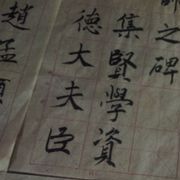 師之碑
集賢學資
德大夫臣
趙孟頫